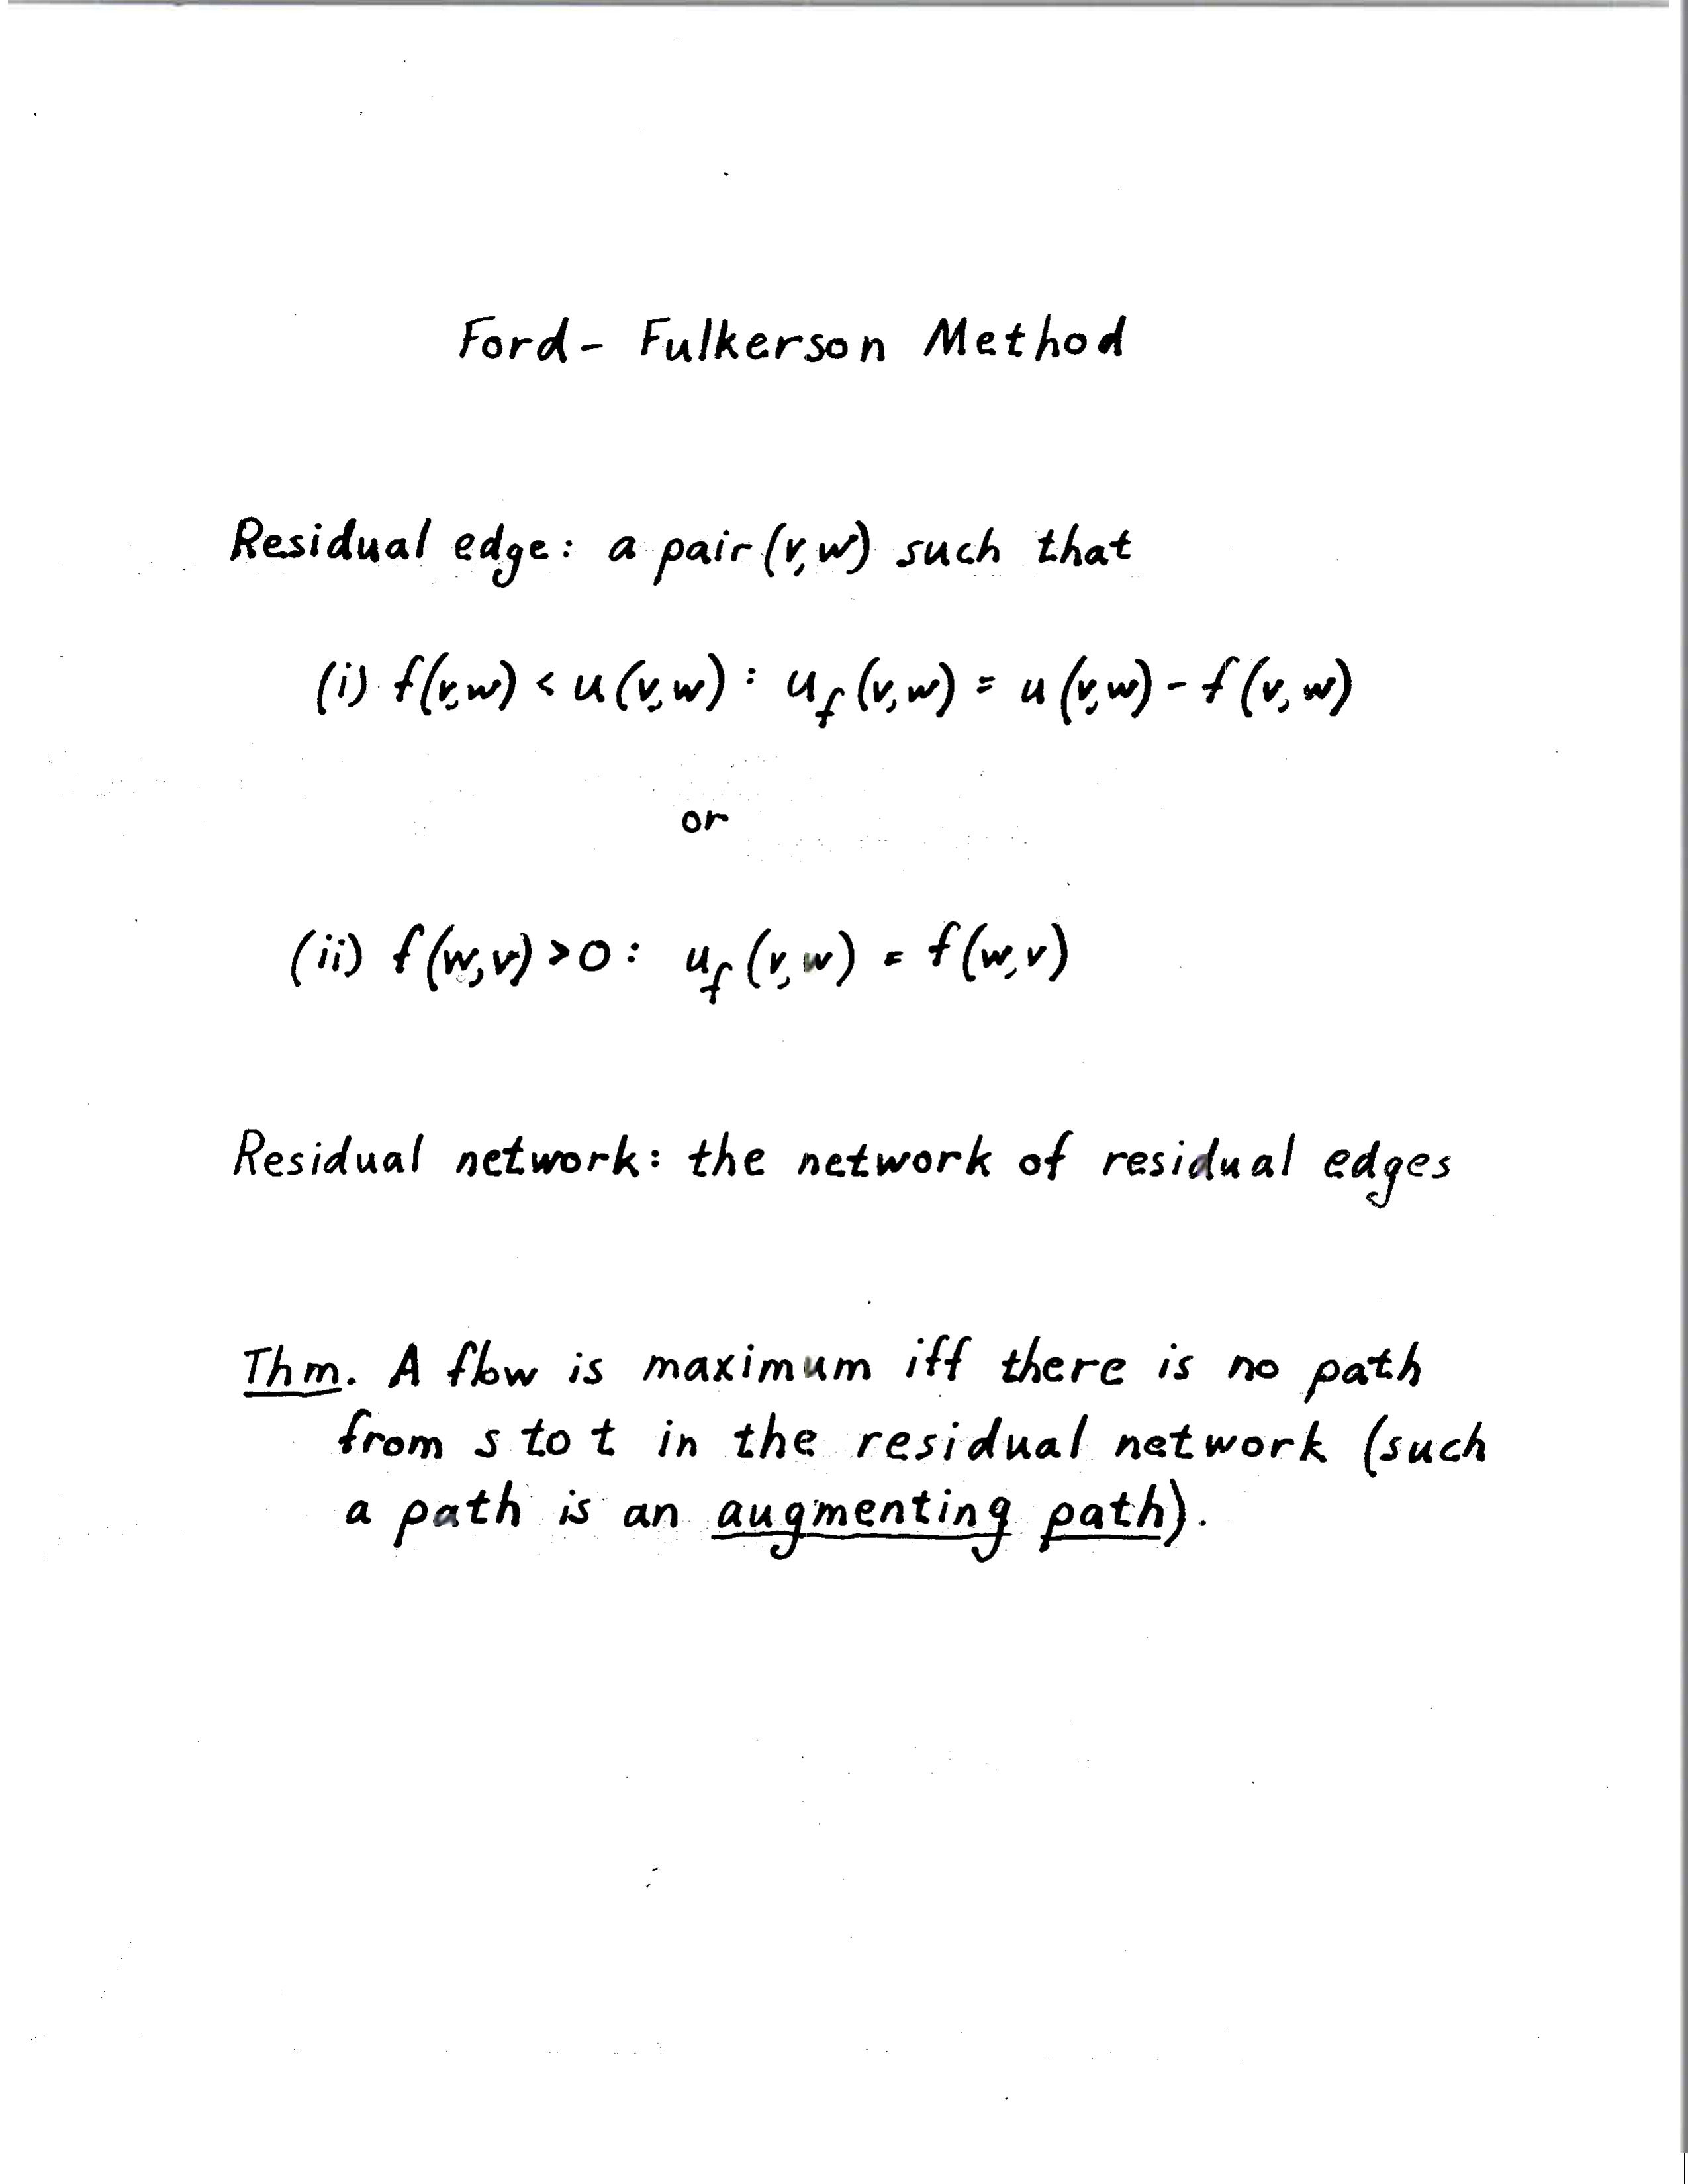 Ford- Fulkerson Method
Residual edge: a pair (v,w) such that
(i) f(v,w) < u(v,w) : u_f(v,w) = u(v,w) - f(v,w)
or
(ii) f(w,v) > 0 : u_f(v,w) = f(w,v)
Residual network: the network of residual edges
Thm. A flow is maximum iff there is no path
from s to t in the residual network (such
a path is an augmenting path).